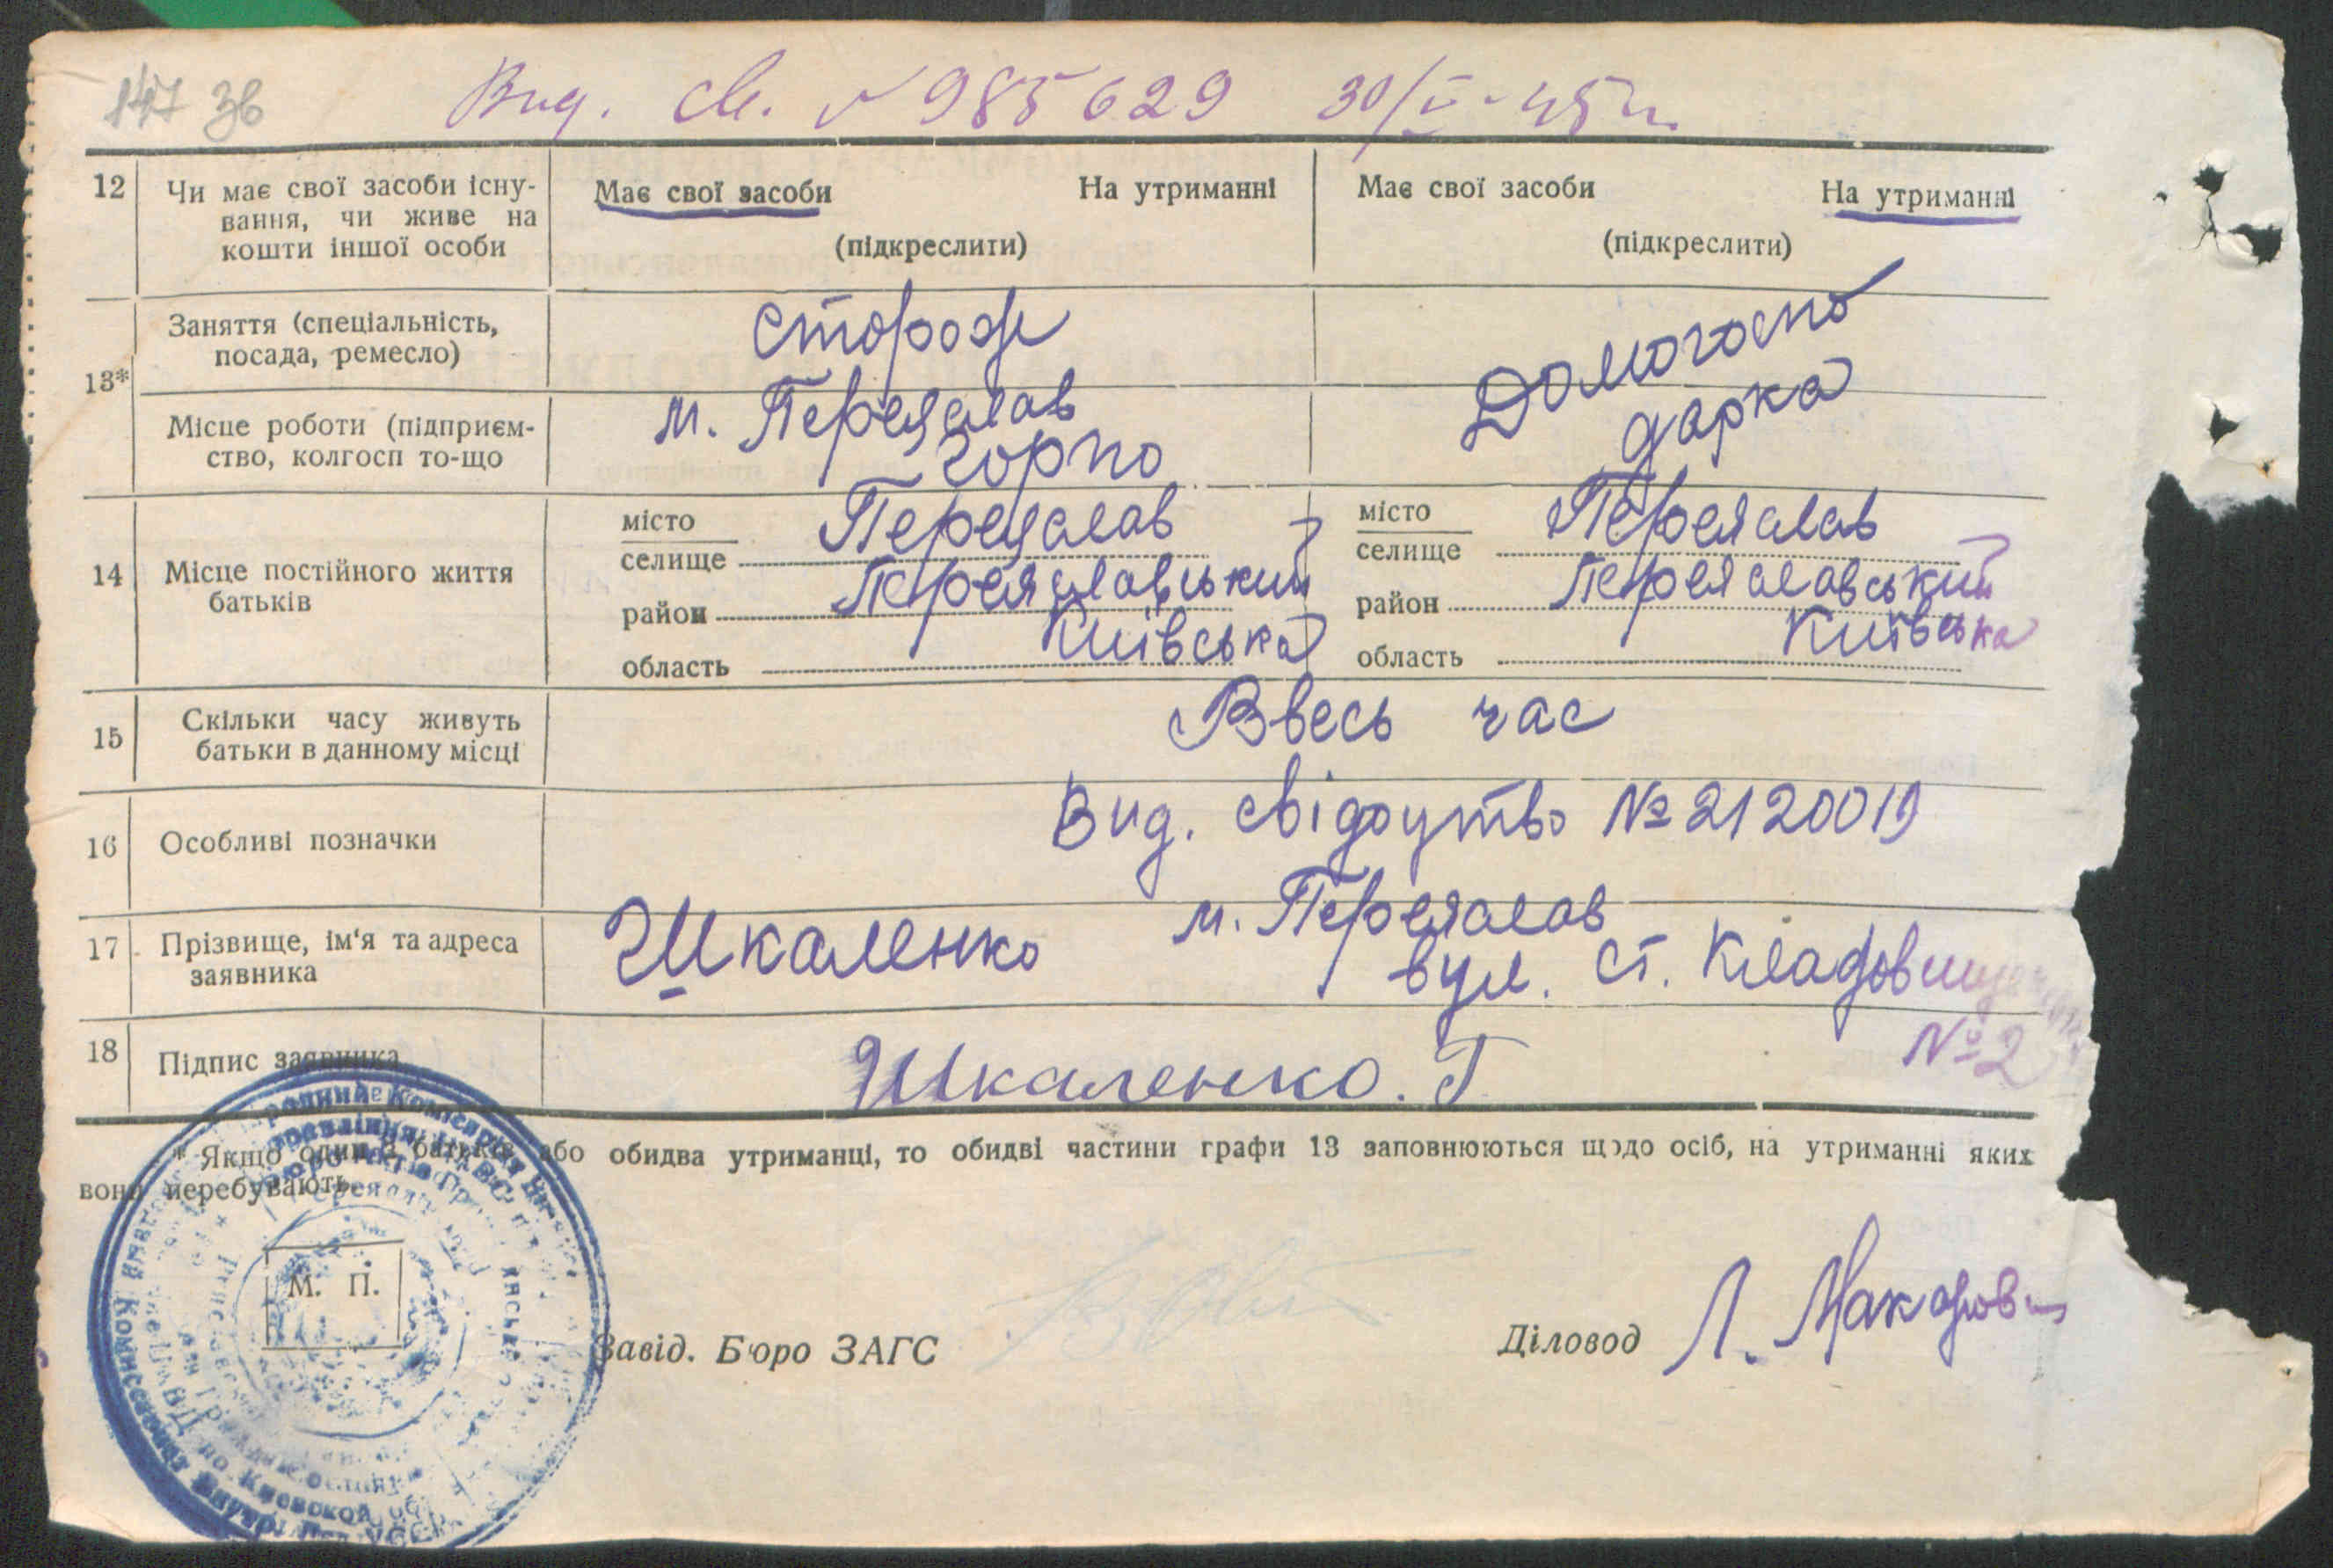 147 зв
Вид. св. № 985629 30/V-45 р.
12 Чи має свої засоби існу-
вання, чи живе на
кошти іншої особи
Має свої засоби На утриманні
(підкреслити)
Має свої засоби На утриманні
(підкреслити)
13*
Заняття (спеціальність,
посада, ремесло)
сторож
Домогоспо
дарка
Місце роботи (підприєм-
ство, колгосп то-що
м. Переяслав
14 Місце постійного життя
батьків
місто
селище Переяслав
район Переяславський
область Київська
місто
селище Переяслав
район Переяславський
область Київська
15 Скільки часу живуть
батьки в данному місці
Ввесь час
16 Особливі позначки
Вид. свідоцтво № 2120019
17 Прізвище, ім'я та адреса
заявника
Шкаленко м. Переяслав
вул. Ст.
№ 2
18 Підпис заявника
Шкаленко. Г
* Якщо один з батьків або обидва утриманці, то обидві частини графи 13 заповнюються щодо осіб, на утриманні яких
вони перебувають.
М. П.
Завід. Бюро ЗАГС
Діловод Л.